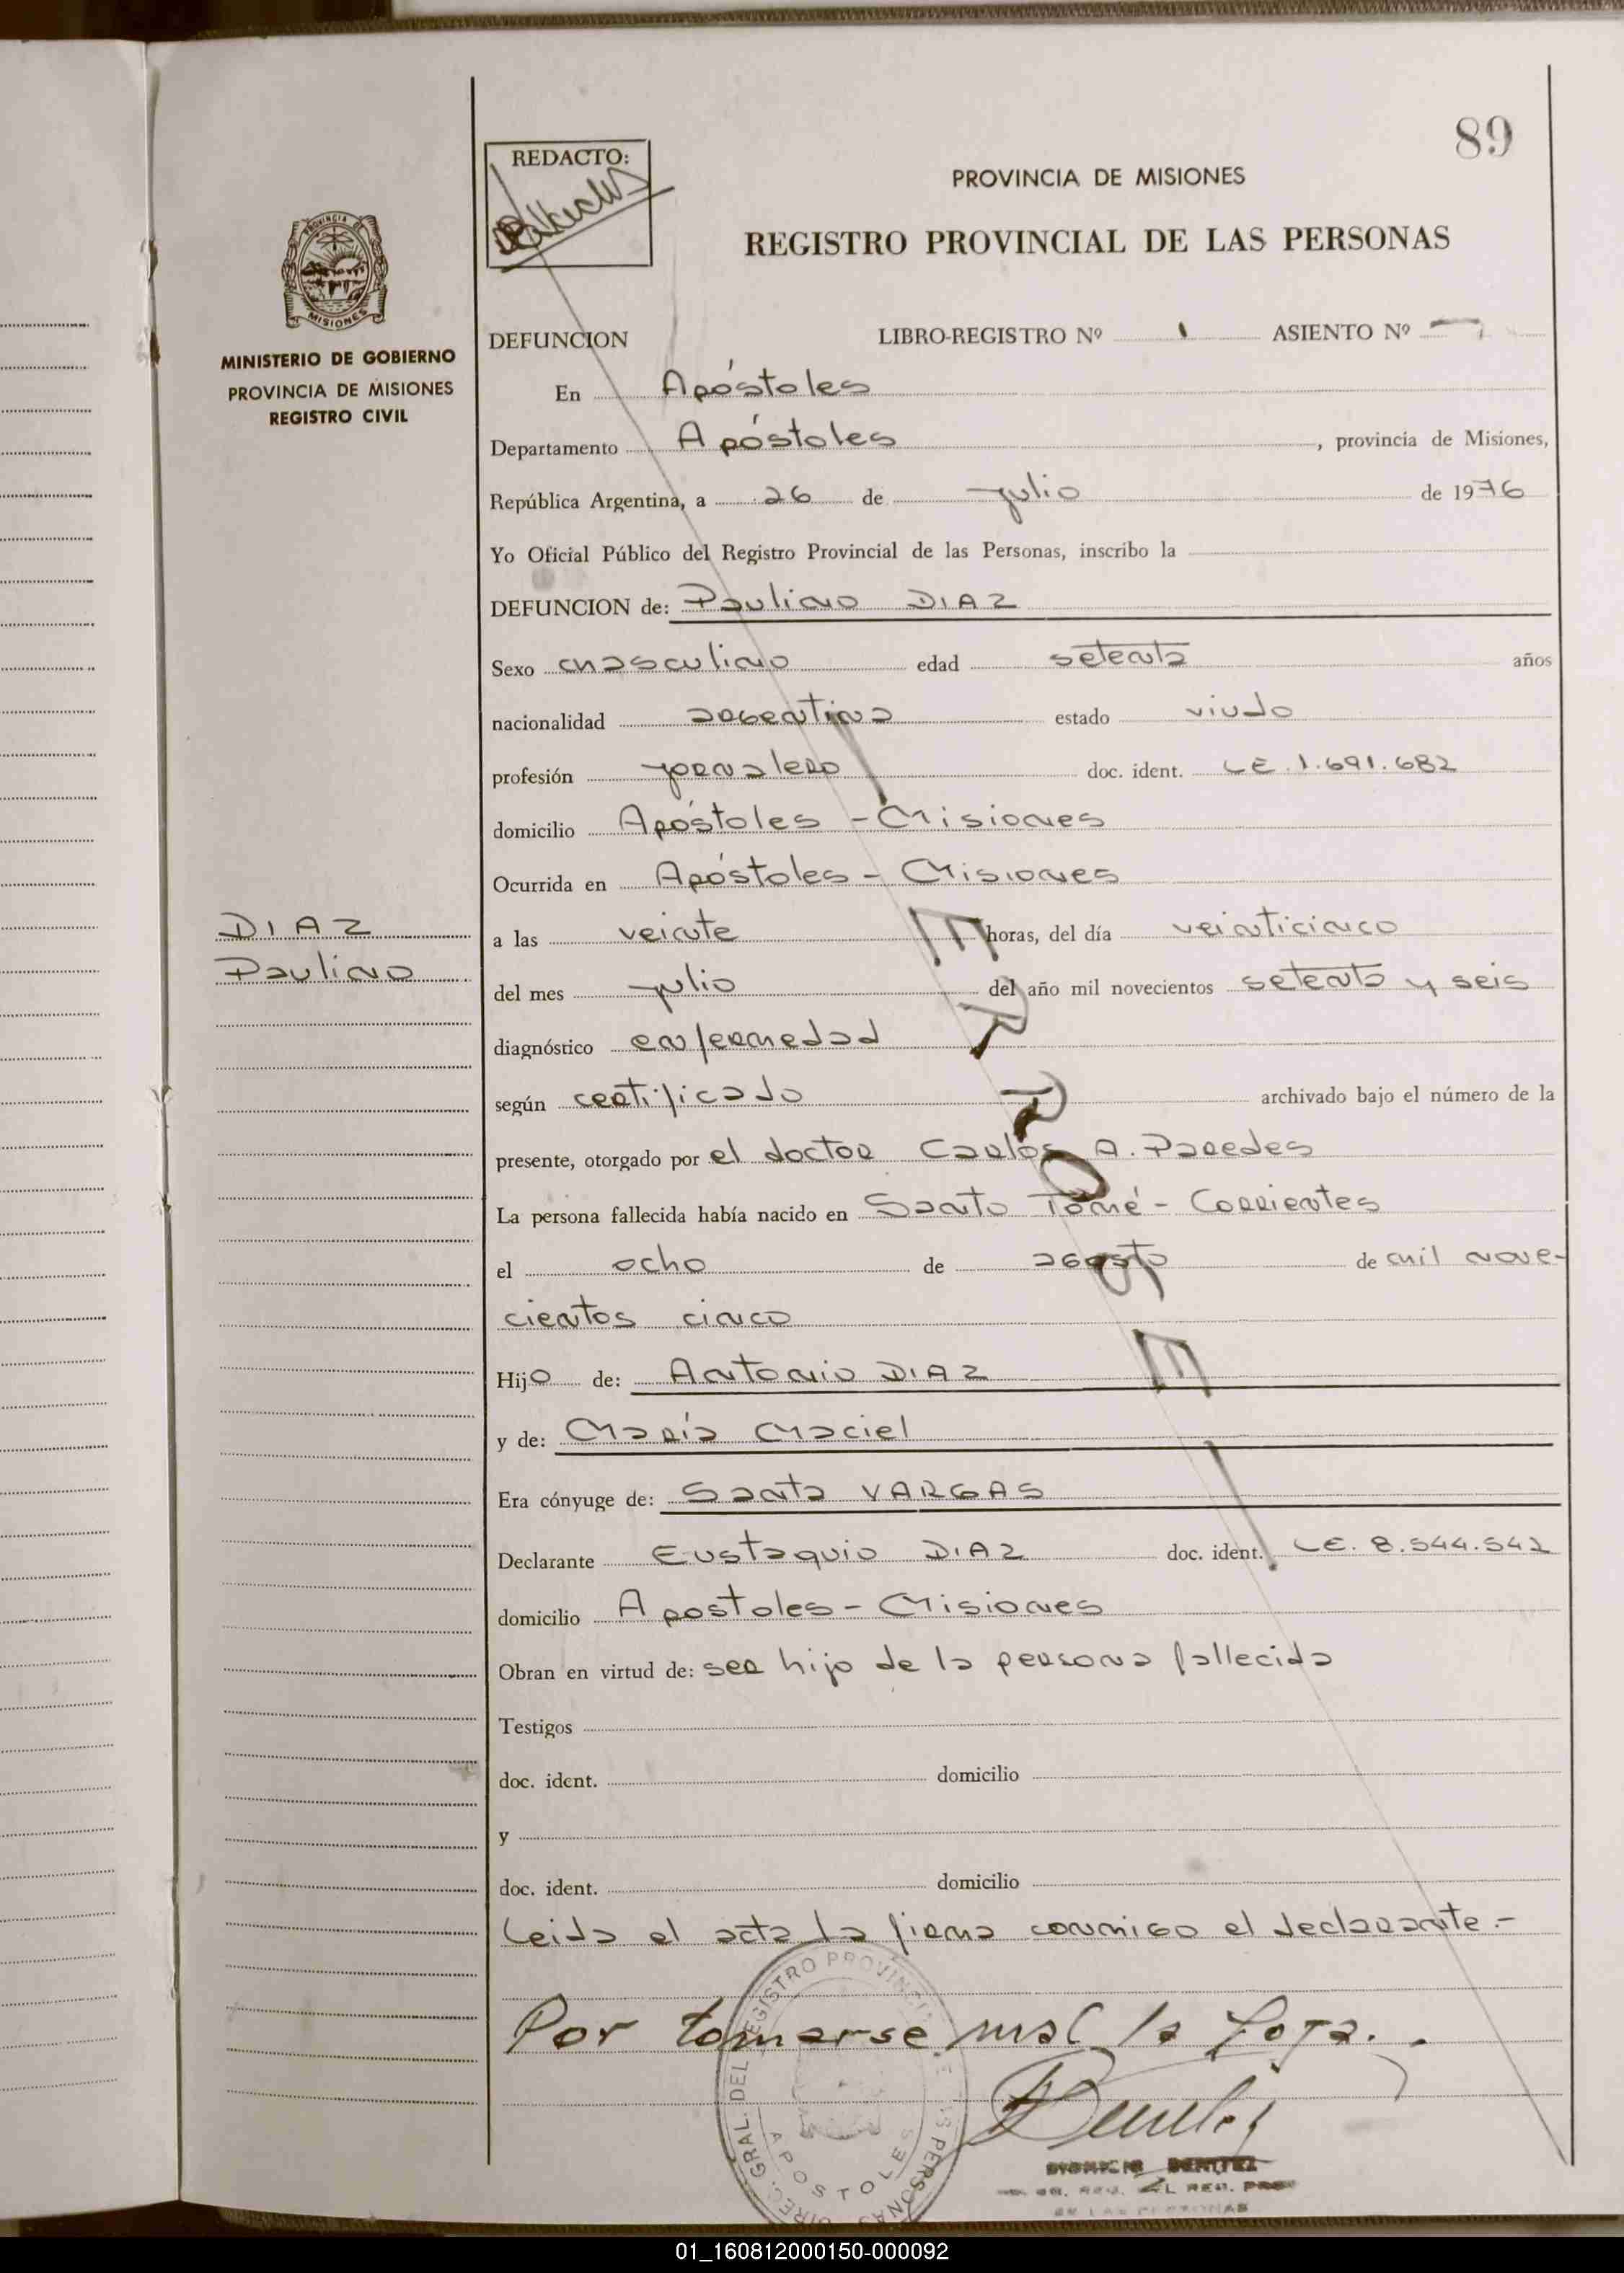 89
REDACTO:
PROVINCIA DE MISIONES
REGISTRO PROVINCIAL DE LAS PERSONAS
PROVINCIA
MISIONES
MINISTERIO DE GOBIERNO
PROVINCIA DE MISIONES
REGISTRO CIVIL
DEFUNCION LIBRO-REGISTRO Nº 1 ASIENTO Nº
En Apóstoles
Departamento Apóstoles, provincia de Misiones,
República Argentina, a 26 de julio de 1976
Yo Oficial Público del Registro Provincial de las Personas, inscribo la
DEFUNCION de: Paulino DIAZ
Sexo masculino edad setenta años
nacionalidad argentina estado viudo
profesión jornalero doc. ident. LE.1.691.682
domicilio Apóstoles - Misiones
Ocurrida en Apóstoles - Misiones
DIAZ
Paulino
a las veinte horas, del día veinticinco
del mes julio del año mil novecientos setenta y seis
diagnóstico enfermedad
según certificado archivado bajo el número de la
presente, otorgado por el doctor Carlos A. Paredes
La persona fallecida había nacido en Santo Tomé - Corrientes
el ocho de agosto de mil nove-
cientos cinco
Hijo de: Antonio DIAZ
y de: María Maciel
Era cónyuge de: Santa VARGAS
Declarante Eustaquio DIAZ doc. ident. LE. 8.544.542
domicilio Apostoles - Misiones
Obran en virtud de: ser hijo de la persona fallecida
Testigos
doc. ident. domicilio
y
doc. ident. domicilio
Leida el acta la firma conmigo el declarante.-
Por tomarse mal la foja.
DIREC. GRAL. DEL REGISTRO PROVINCIAL DE LAS PERSONAS
APOSTOLES
DIONICIO BENITEZ
DE LAS PERSONAS
01_160812000150-000092